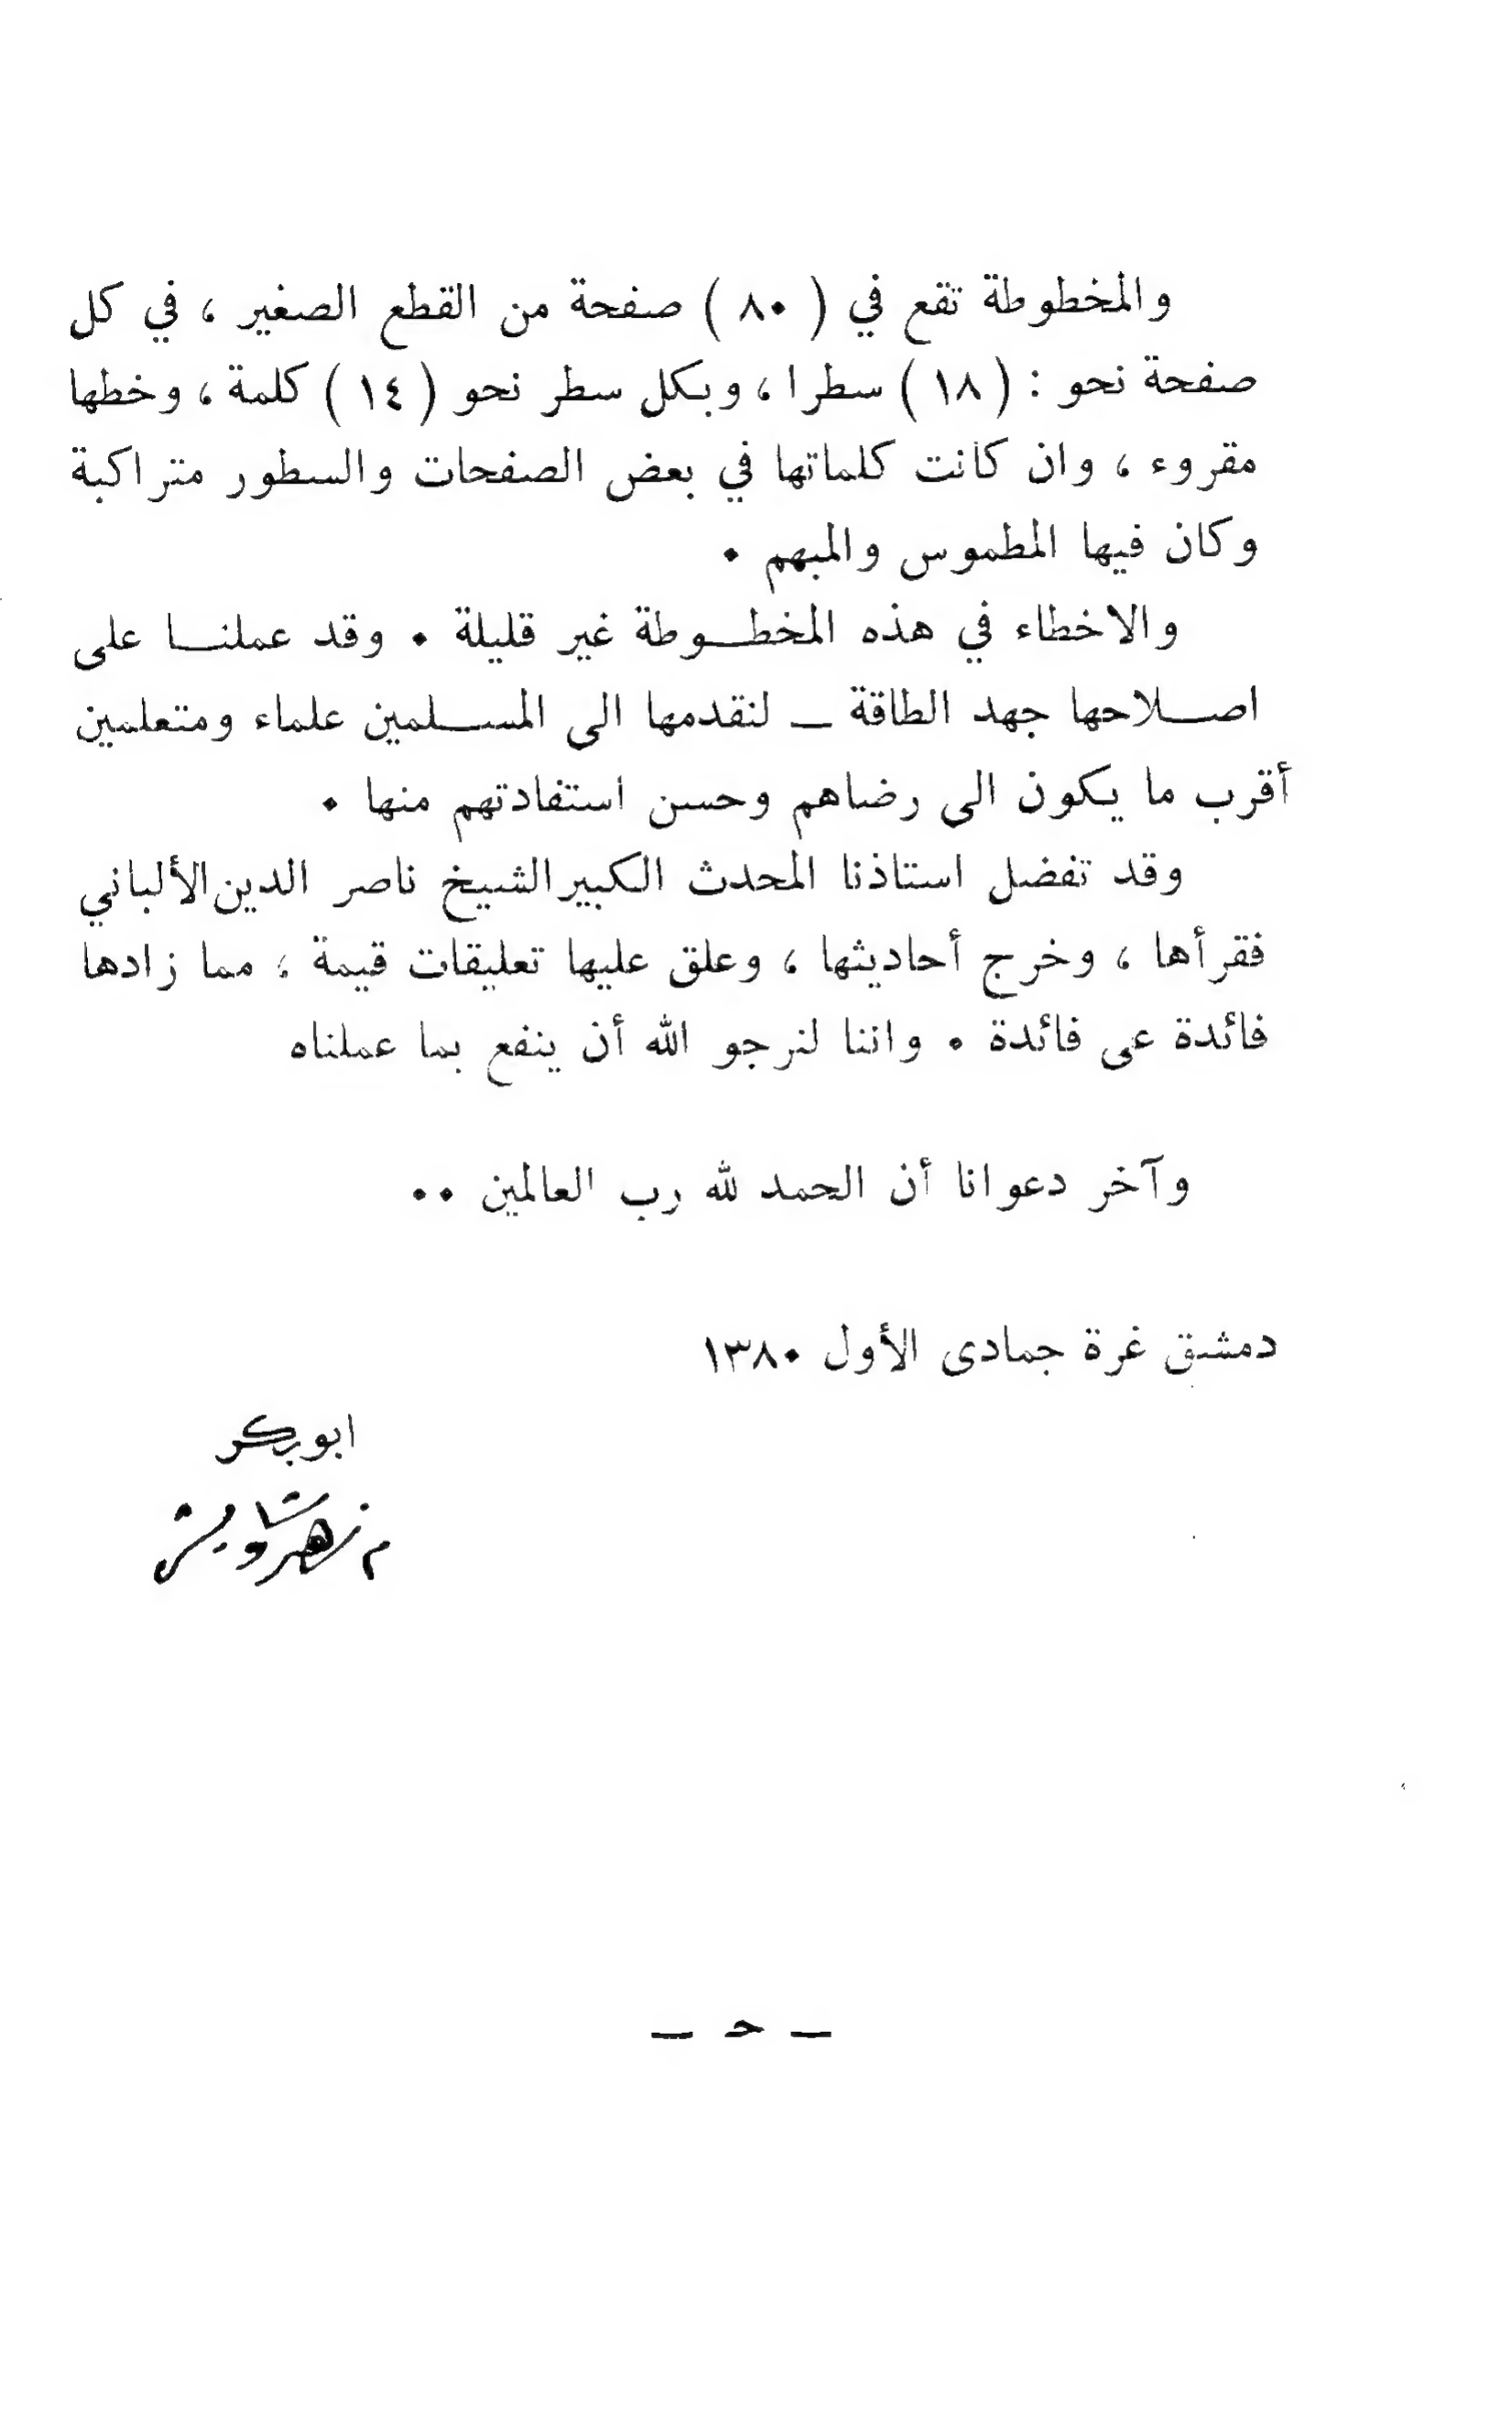 والمخطوطة تقع في ( ٨٠ ) صفحة من القطع الصغير ، في كل
صفحة نحو : ( ١٨ ) سطرا ، وبكل سطر نحو ( ١٤ ) كلمة ، وخطها
مقروء ، وان كانت كلماتها في بعض الصفحات والسطور متراكبة
وكان فيها المطموس والمبهم .
والاخطاء في هذه المخطوطة غير قليلة . وقد عملنا على
اصلاحها جهد الطاقة ــ لنقدمها الى المسلمين علماء ومتعلمين
أقرب ما يكون الى رضاهم وحسن استفادتهم منها .
وقد تفضل استاذنا المحدث الكبير الشيخ ناصر الدين الألباني
فقرأها ، وخرج أحاديثها ، وعلق عليها تعليقات قيمة ، مما زادها
فائدة عى فائدة . واننا لنرجو الله أن ينفع بما عملناه
وآخر دعوانا أن الحمد لله رب العالمين ..
دمشق غرة جمادى الأول ١٣٨٠
ابو بكر
م زهير شاويش
ــ حـ ــ